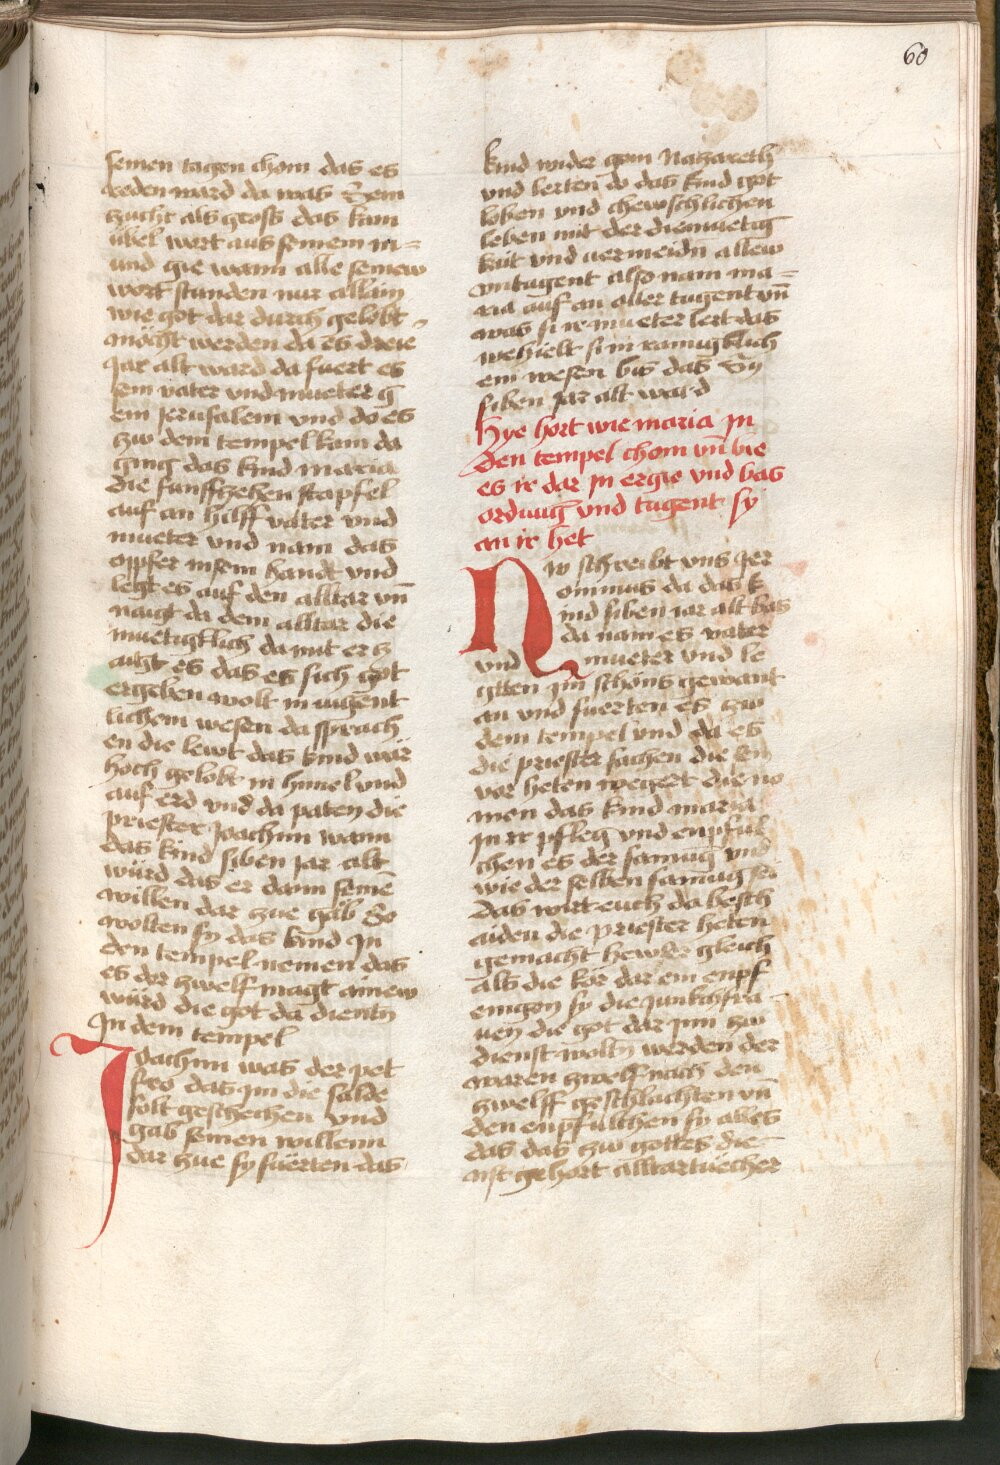 60
seinen tagen chom das es
reden ward da was Sein
zucht als gross das kain
übel wort aus seinem m=
und gie wann alle seinew
wort stunden nur allain
wie got dar durch gelobt
möcht werden da es drew
Jar alt ward da fuert es
sein vater und mueter g
ein Jerusalem und do es
zw dem tempel kam da
ging das kind maria
die funffzehen stapfel
auf an hilff vater und
mueter und nam das
opfer insein handt und
legt es auf den alltar vn̄
naigt da dem alltar die
muetigklich da mit er z
aigt es das es sich got
ergeben wolt in tugent
lichem wesen da sprach
en die lewt das kind wär
hoch gelobt in himel und
auf erd und da paten die
priester Joachim wann
das kind siben Jar alt
würd das er dann seinē
willen dar zue gäb So
wolten sy das kind In
den tempel nemen das
es dar zwelf magt ainew
würd die got da dientn
In dem tempel
Joachim was der pet
fro das im die sälde
solt geschechen und
gab seinen willenn
dar zue sy fuerten das
kind wider gem Nazareth
und lerten do das kind got
loben und chewschlichen
leben mit der diemuetig
kait und vermeidn allew
untugent also nam ma=
ria auf an aller tugent vn̄
was si ir mueter lert das
wehielt si in rainigklich
em wesen bis das Sy
siben Jar alt ward
Hye hort wie maria In
den tempel chom vn̄ wie
es ir dar In ergie und was
ordnuḡ und tugent sy
an ir het
Nw schreibt uns Jer
onimus da das k
ind siben iar alt was
da nam es vater
und mueter und le
gtten im schöns gewant
an und fuerten es zw
dem tempel und da es
die priester sachen die sein
vor heten wegert die no
men das kind maria
In ir pfleg und enpful
chen es der samuḡ und
wie der selben samuḡ sei
das wirt euch da besch
aiden die priester heten
gemacht hewser gleich
als die kör dar ein enpf
iengen sy die Junkchfra
uen die got dar inn zw
dienst woltn werden der
waren zwelf nach den
zwelff geschlächten vn̄
den enpfulchen sy alles
das das zw gottes die
nst gehört alltartuecher